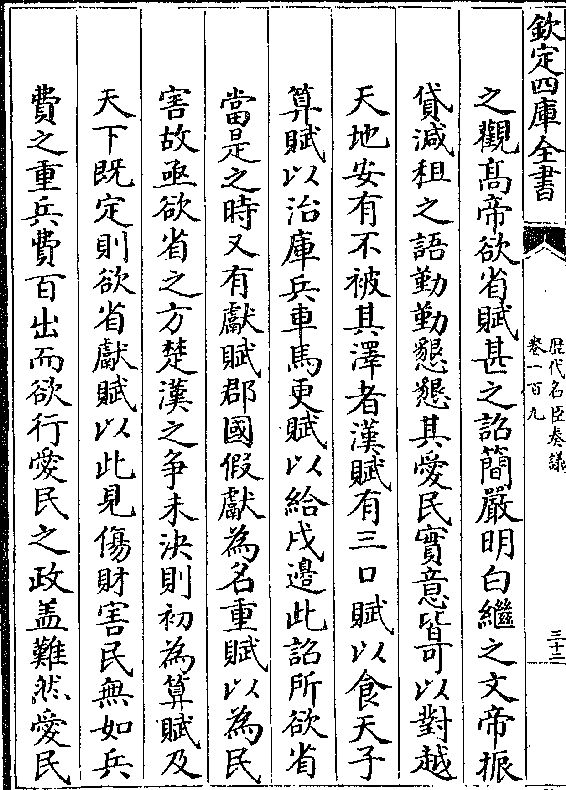 欽定四庫全書
歷代名臣奏議
卷一百九
三十二
之觀髙帝欲省賦甚之詔簡嚴明白繼之文帝振
貸減租之語勤勤懇懇其愛民實意皆可以對越
天地安有不被其澤者漢賦有三口賦以食天子
算賦以治庫兵車馬更賦以給戍邊此詔所欲省
當是之時又有獻賦郡國假獻為名重賦以為民
害故亟欲省之方楚漢之爭未決則初為算賦及
天下既定則欲省獻賦以此見傷財害民無如兵
費之重兵費百出而欲行愛民之政盖難然愛民